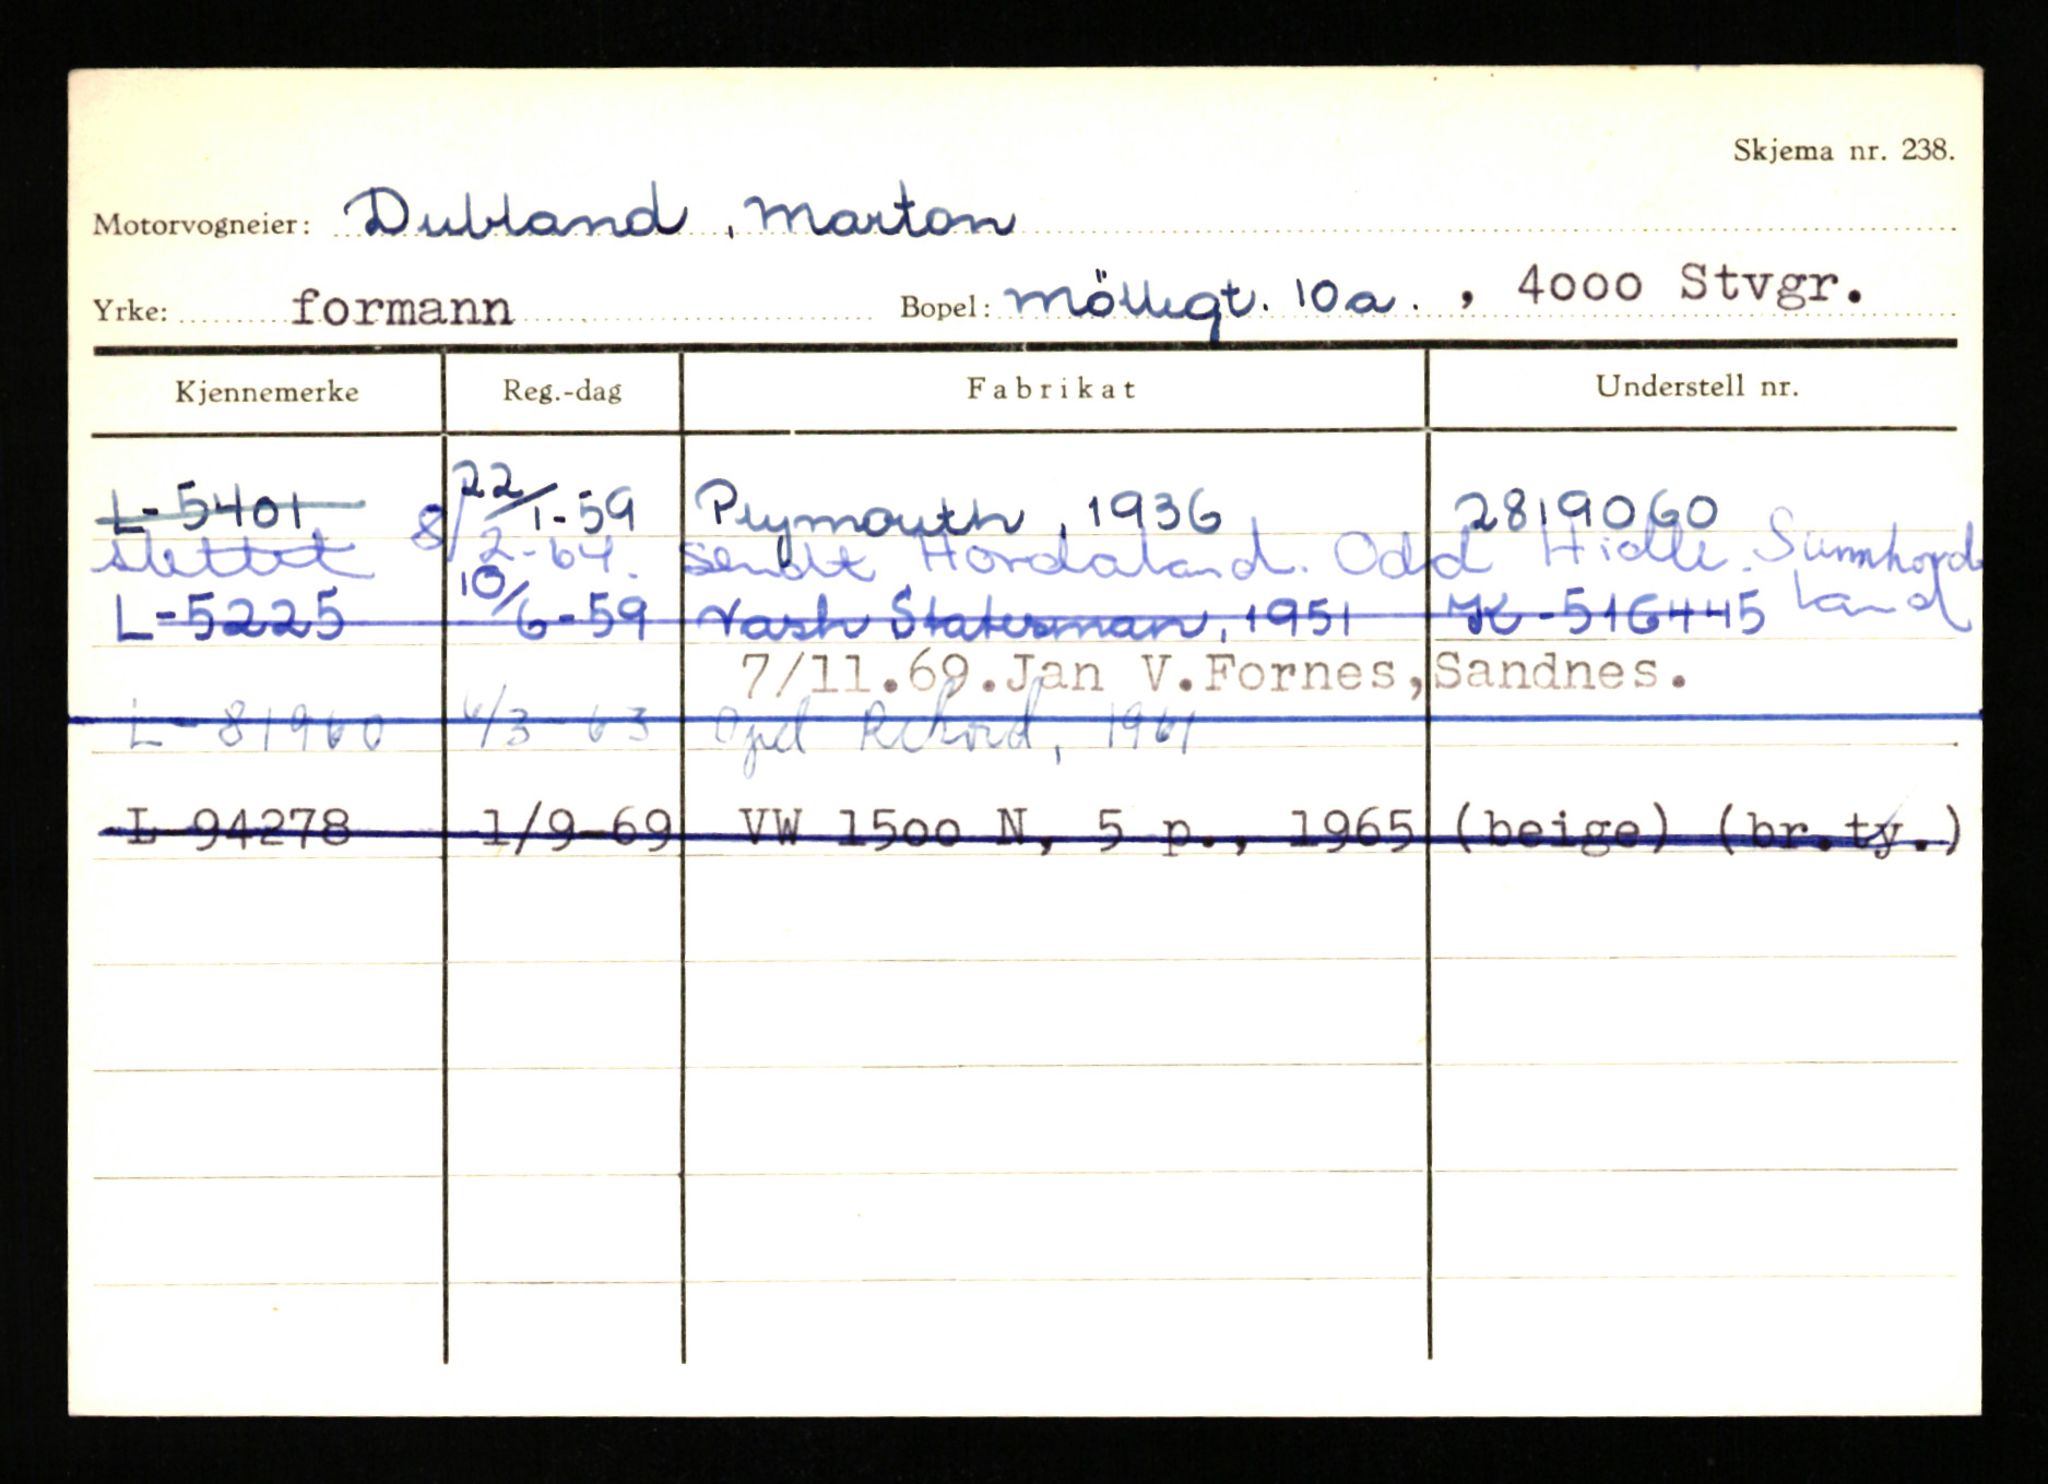 Skjema nr. 238.
Motorvogneier: Dubland, Marton
Yrke: formann Bopel: Möllegt. 10a. , 4000 Stvgr.
Kjennemerke Reg.-dag Fabrikat Understell nr.
L-5401 22/1-59 Plymouth, 1936 2819060
slettet 8/2-64. sendt Hordaland. Odd Hidle. Sunnhord
land
L-5225 10/6-59 Nash Statesman, 1951 K-516445
7/11.69.Jan V.Fornes,Sandnes.
L-81960 6/3-63 Opel Rekord, 1961
L-94278 1/9-69 VW 1500 N, 5 p., 1965 (beige) (br.ty.)